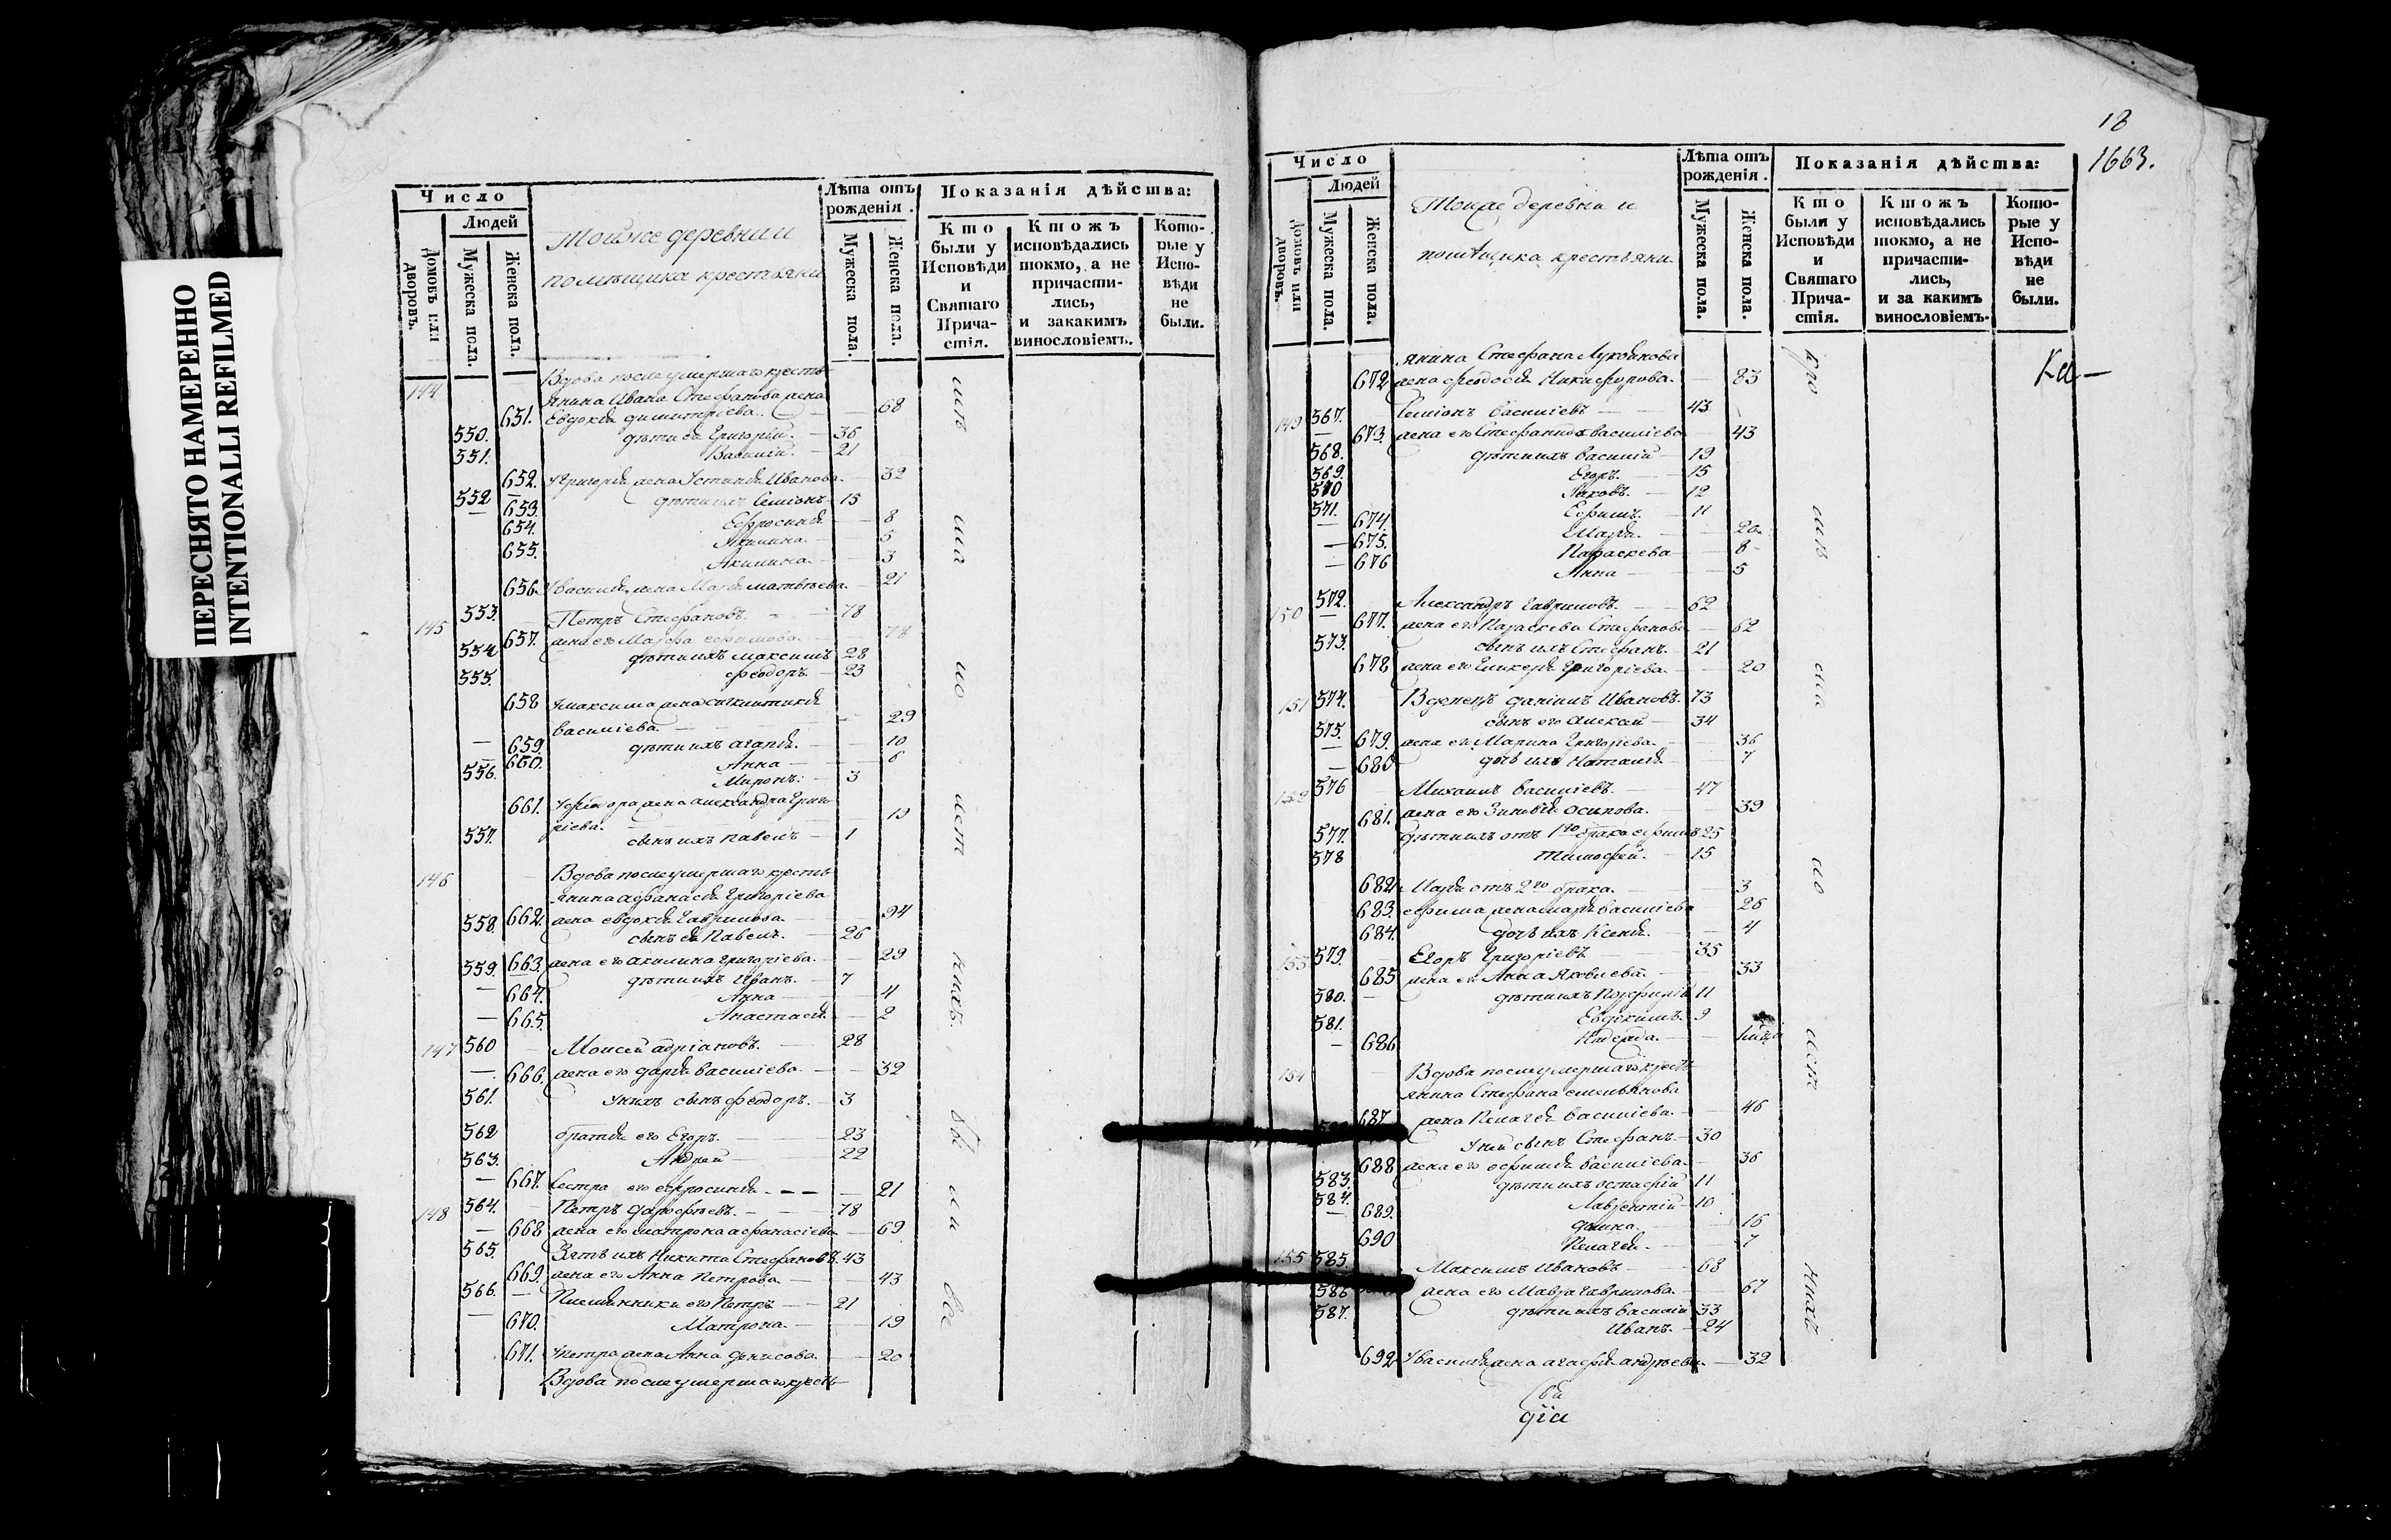 ПЕРЕСНЯТО НАМЕРЕННО
INTENTIONALLI REFILMED
Число
Людей
Домовъ или дворовъ.
Мужеска пола.
Женска пола.
Тойже деревни и
помѣщика крестьяни
Лѣта отъ рожденія.
Мужеска пола.
Женска пола.
Показанія дѣйства:
Кто были у Исповѣди и Святаго Причастія.
Ктожъ исповѣдались токмо, а не причастились, и закакимъ винословіемъ.
Которые у Исповѣди не были.
144 Вдова после умершаго кресть
янина Ивана Стефанова жена
651. Евдокія димитріева. 68
550. дѣти ея Григорій. 36
551. Василій. 21
652. У Григорія жена Устинія Иванова. 32
552 дѣти ихъ Семіонъ 15
653. Ефросинія 8
654. Акилина. 5
655. Акилина. 3
656. У василія жена Марія матвѣева. 21
145 553. Петръ Стефановъ. 78
657. жена его Марфа ефимова. 78
554 дѣти ихъ максимъ 28
555. феодоръ. 23
658 У максима жена
василіева. 29
659. дѣти ихъ агапія. 10
660. Анна 6
556. Миронъ. 3
661. У феодора жена александра Григо
ріева. 19
557. сынъ ихъ павелъ 1
146 Вдова после умершаго кресть
янина афанасія Григоріева
662. жена евдокія Гаврилова. 94
558. сынъ ея Павелъ. 26
663. жена его акилина григоріева. 29
559. дѣти ихъ Иванъ. 7
664. Анна 4
665. Анастасія 2
147 560 Моисей адріановъ. 28
666. жена его дарія василіева 32
561. У нихъ сынъ феодоръ. 3
562 братія его Егоръ. 23
563. Андрей 22
667. Сестра его ефросинія 21
148 564. Петръ дорофѣевъ. 78
668 жена его матрона афанасіева 69
565. Зять ихъ Никита Стефановъ. 43
669. жена его Анна Петрова 43
566. Племянники его Петръ 21
670. Матрона. 19
671. У петра жена Анна денисова. 20
Вдова после умершаго кресть
18
1663.
Число
Людей
Домовъ или дворовъ.
Мужеска пола.
Женска пола.
Тойже деревни и
помѣщика крестьяни
Лѣта отъ рожденія.
Мужеска пола.
Женска пола.
Показанія дѣйства:
Кто были у Исповѣди и Святаго Причастія.
Ктожъ исповѣдались токмо, а не причастились, и за какимъ винословіемъ.
Которые у Исповѣди не были.
янина Стефана
672 жена феодосія Никифорова. 83
149 567. Семіонъ василіевъ 43
673. жена его Стефанида василіева 43
568. дѣти ихъ василій 19
569. Егоръ. 15
570 Іаковъ. 12
571. Ефимъ. 11
674. Марія. 20
675. Параскева 8
676 Анна 5
150 572. Александръ Гавриловъ. 62
677. жена его Параскева Стефанова 62
573. сынъ ихъ Стефанъ. 21
678 жена его Гликерія Григоріева. 20
151 574. Вдовецъ даніилъ Ивановъ. 73
575. сынъ его алексей 34
679. жена его Марина Григоріева. 36
680 дочь ихъ Наталія 7
152 576 Михаилъ василіевъ. 47
681. жена его Зиновія осипова. 39
577. дѣти ихъ отъ 1го брака ефимъ 25
578 тимофей. 15
682 Марія отъ 2го брака. 3
683. ефима жена марія василіева 26
684. дочь ихъ Ксенія. 4
153 579. Егоръ Григоріевъ 35
685 жена его Анна Яковлева. 33
580. дѣти ихъ Порфирій 11
581. Евдокимъ. 9
686 Надежда.
154 Вдова после умершаго кресть
янина Стефана емельянова
687 жена Пелагея василіева. 46
У ней сынъ Стефанъ. 30
688 жена его василіева. 36
583. дѣти ихъ остафій 11
584. Лаврентій 10
689. 16
690 Пелагея. 7
155 585 Максимъ Ивановъ 68
жена его Мавра гаврилова. 67
586 дѣти ихъ василій 33
587. Иванъ. 24
692 У василія жена агафія андреева 32